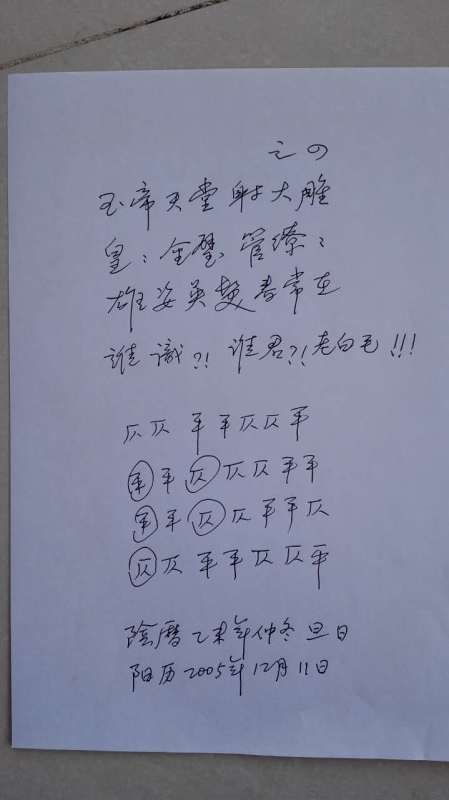 之四
玉帝天堂射大雕
皇：金璧 管缭：
雄姿英发春常在
谁识?! 谁君?! 老白毛!!!
仄仄 平平仄仄平
平平仄仄仄平平
平平仄仄平平仄
仄仄平平仄仄平
陰曆乙未年仲冬旦日
阳历2005年12月11日